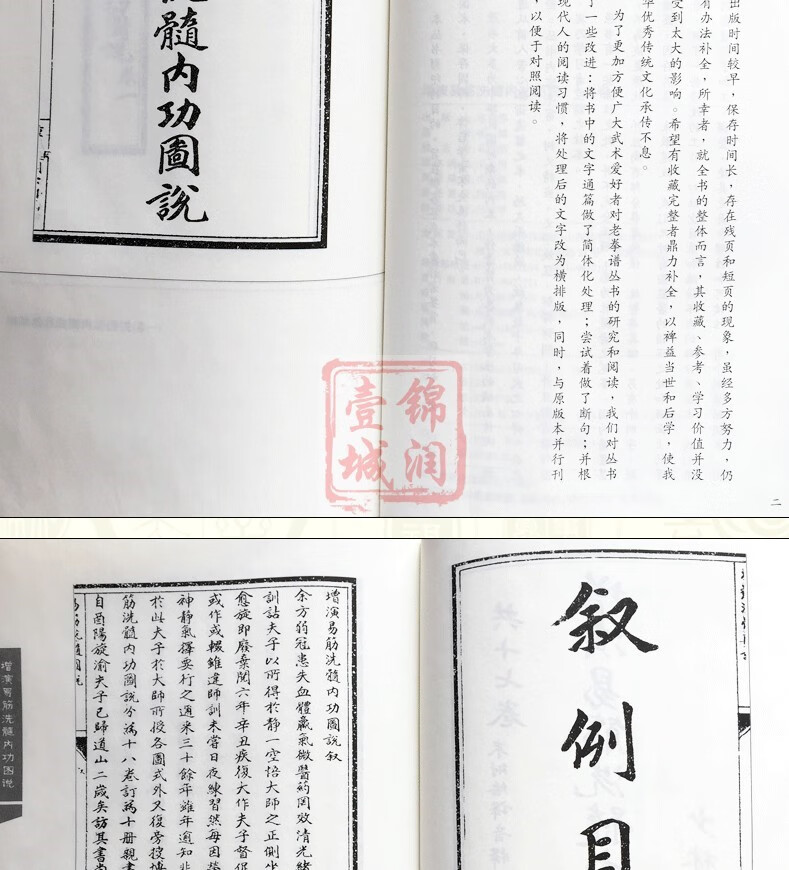 洗髓内功圖說
出版时间较早，保存时间长，存在残页和短页的现象，虽经多方努力，仍
有办法补全，所幸者，就全书的整体而言，其收藏、参考、学习价值并没
受到太大的影响。希望有收藏完整者鼎力补全，以裨益当世和后学，使我
华优秀传统文化承传不息。
为了更加方便广大武术爱好者对老拳谱丛书的研究和阅读，我们对丛书
了一些改进：将书中的文字通篇做了简体化处理；尝试着做了断句；并根
现代人的阅读习惯，将处理后的文字改为横排版，同时，与原版本并行刊
，以便于对照阅读。
二
錦潤
壹城
叙例目
增演易筋洗髓內功圖說叙
余方弱冠患失血體羸氣微醫药罔效清光緒
訓詁夫子以所得於静一空悟大師之正側坐
愈旋即廢棄閱六年辛丑疾復大作夫子督促
或作或輟雖違師訓未嘗日夜練習然每因勞
神静氣擇要行之迺来三十餘年雖年逾知非
於此夫子於大師所授各圖式外又復旁搜博
筋洗髓內功圖說分為十八卷訂為十册親書
自酉陽旋渝夫子已歸道山二歲矣訪其書尚
增演易筋洗髓内功图说